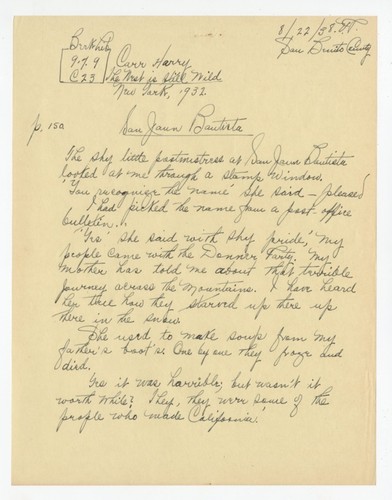 8/22/38.
San Benito County
917.9
C23
Carr Harry
The West is Still Wild
New York, 1932.
p. 150
San Jaun Bautista
The shy little postmistress at San Jaun Bautista
looked at me through a stamp window.
'You recognize the name' she said — pleased
I had picked the name from a post-office
bulletin.
'Yes' she said with shy pride, 'My
people came with the Donner Party. My
Mother has told me about that trerible
journey across the Mountains. I have heard
her how they starved up there up
there in the snow.
She used to make soup from my
father's boots. One by one they froze and
died.
Yes it was horrible; but wasn't it
worth while? They, they were some of the
people who made California.'